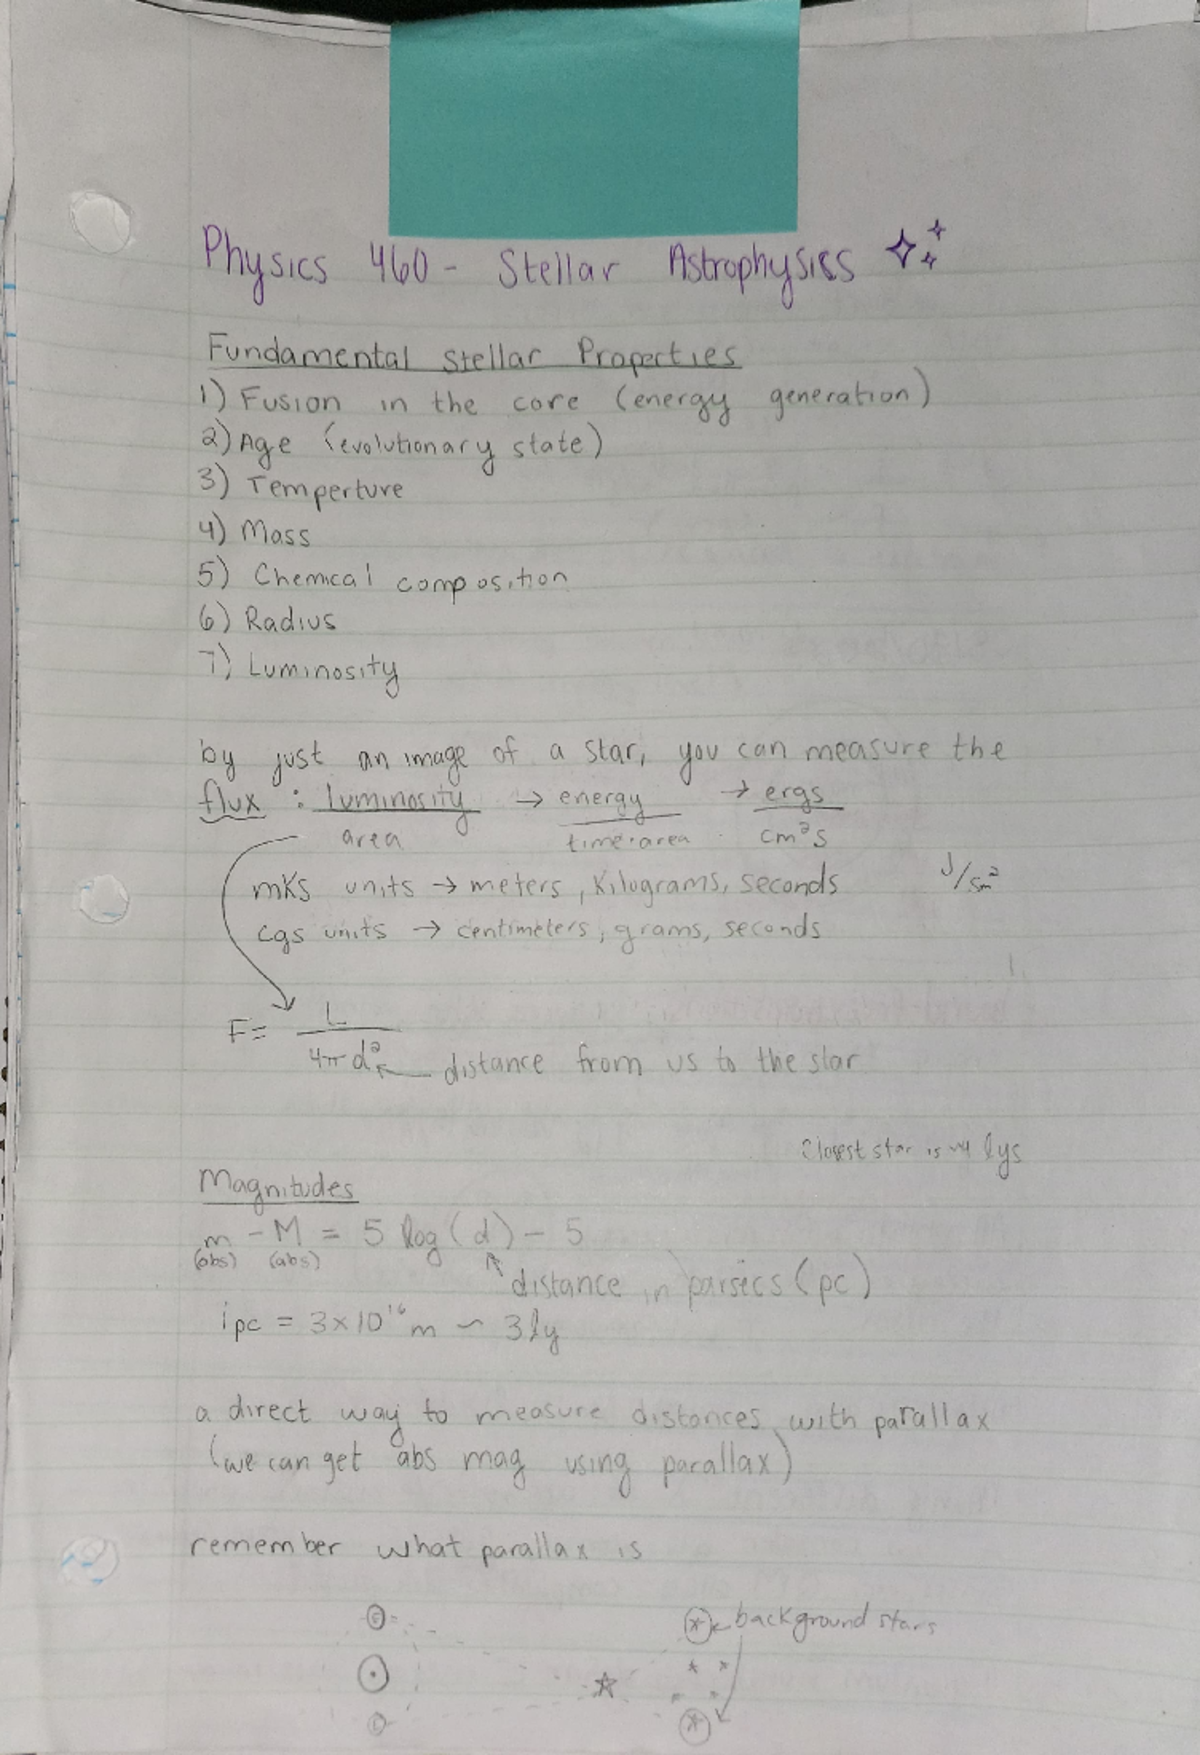 Physics 460 - Stellar Astrophysics
Fundamental Stellar Properties
1) Fusion in the core (energy generation)
2) Age (evolutionary state)
3) Temperture
4) Mass
5) Chemical composition
6) Radius
7) Luminosity
by just an image of a star, you can measure the
flux : luminosity / area → energy / time·area → ergs / cm²s
mks units → meters, kilograms, seconds J/sm²
cgs units → centimeters, grams, seconds
F = L / 4πd² distance from us to the star
Closest star is ~4 lys
Magnitudes
m - M = 5 log(d) - 5
(abs) (abs)
distance in parsecs (pc)
1pc = 3×10¹⁶ m ~ 3ly
a direct way to measure distances with parallax
(we can get abs mag using parallax)
remember what parallax is
background stars